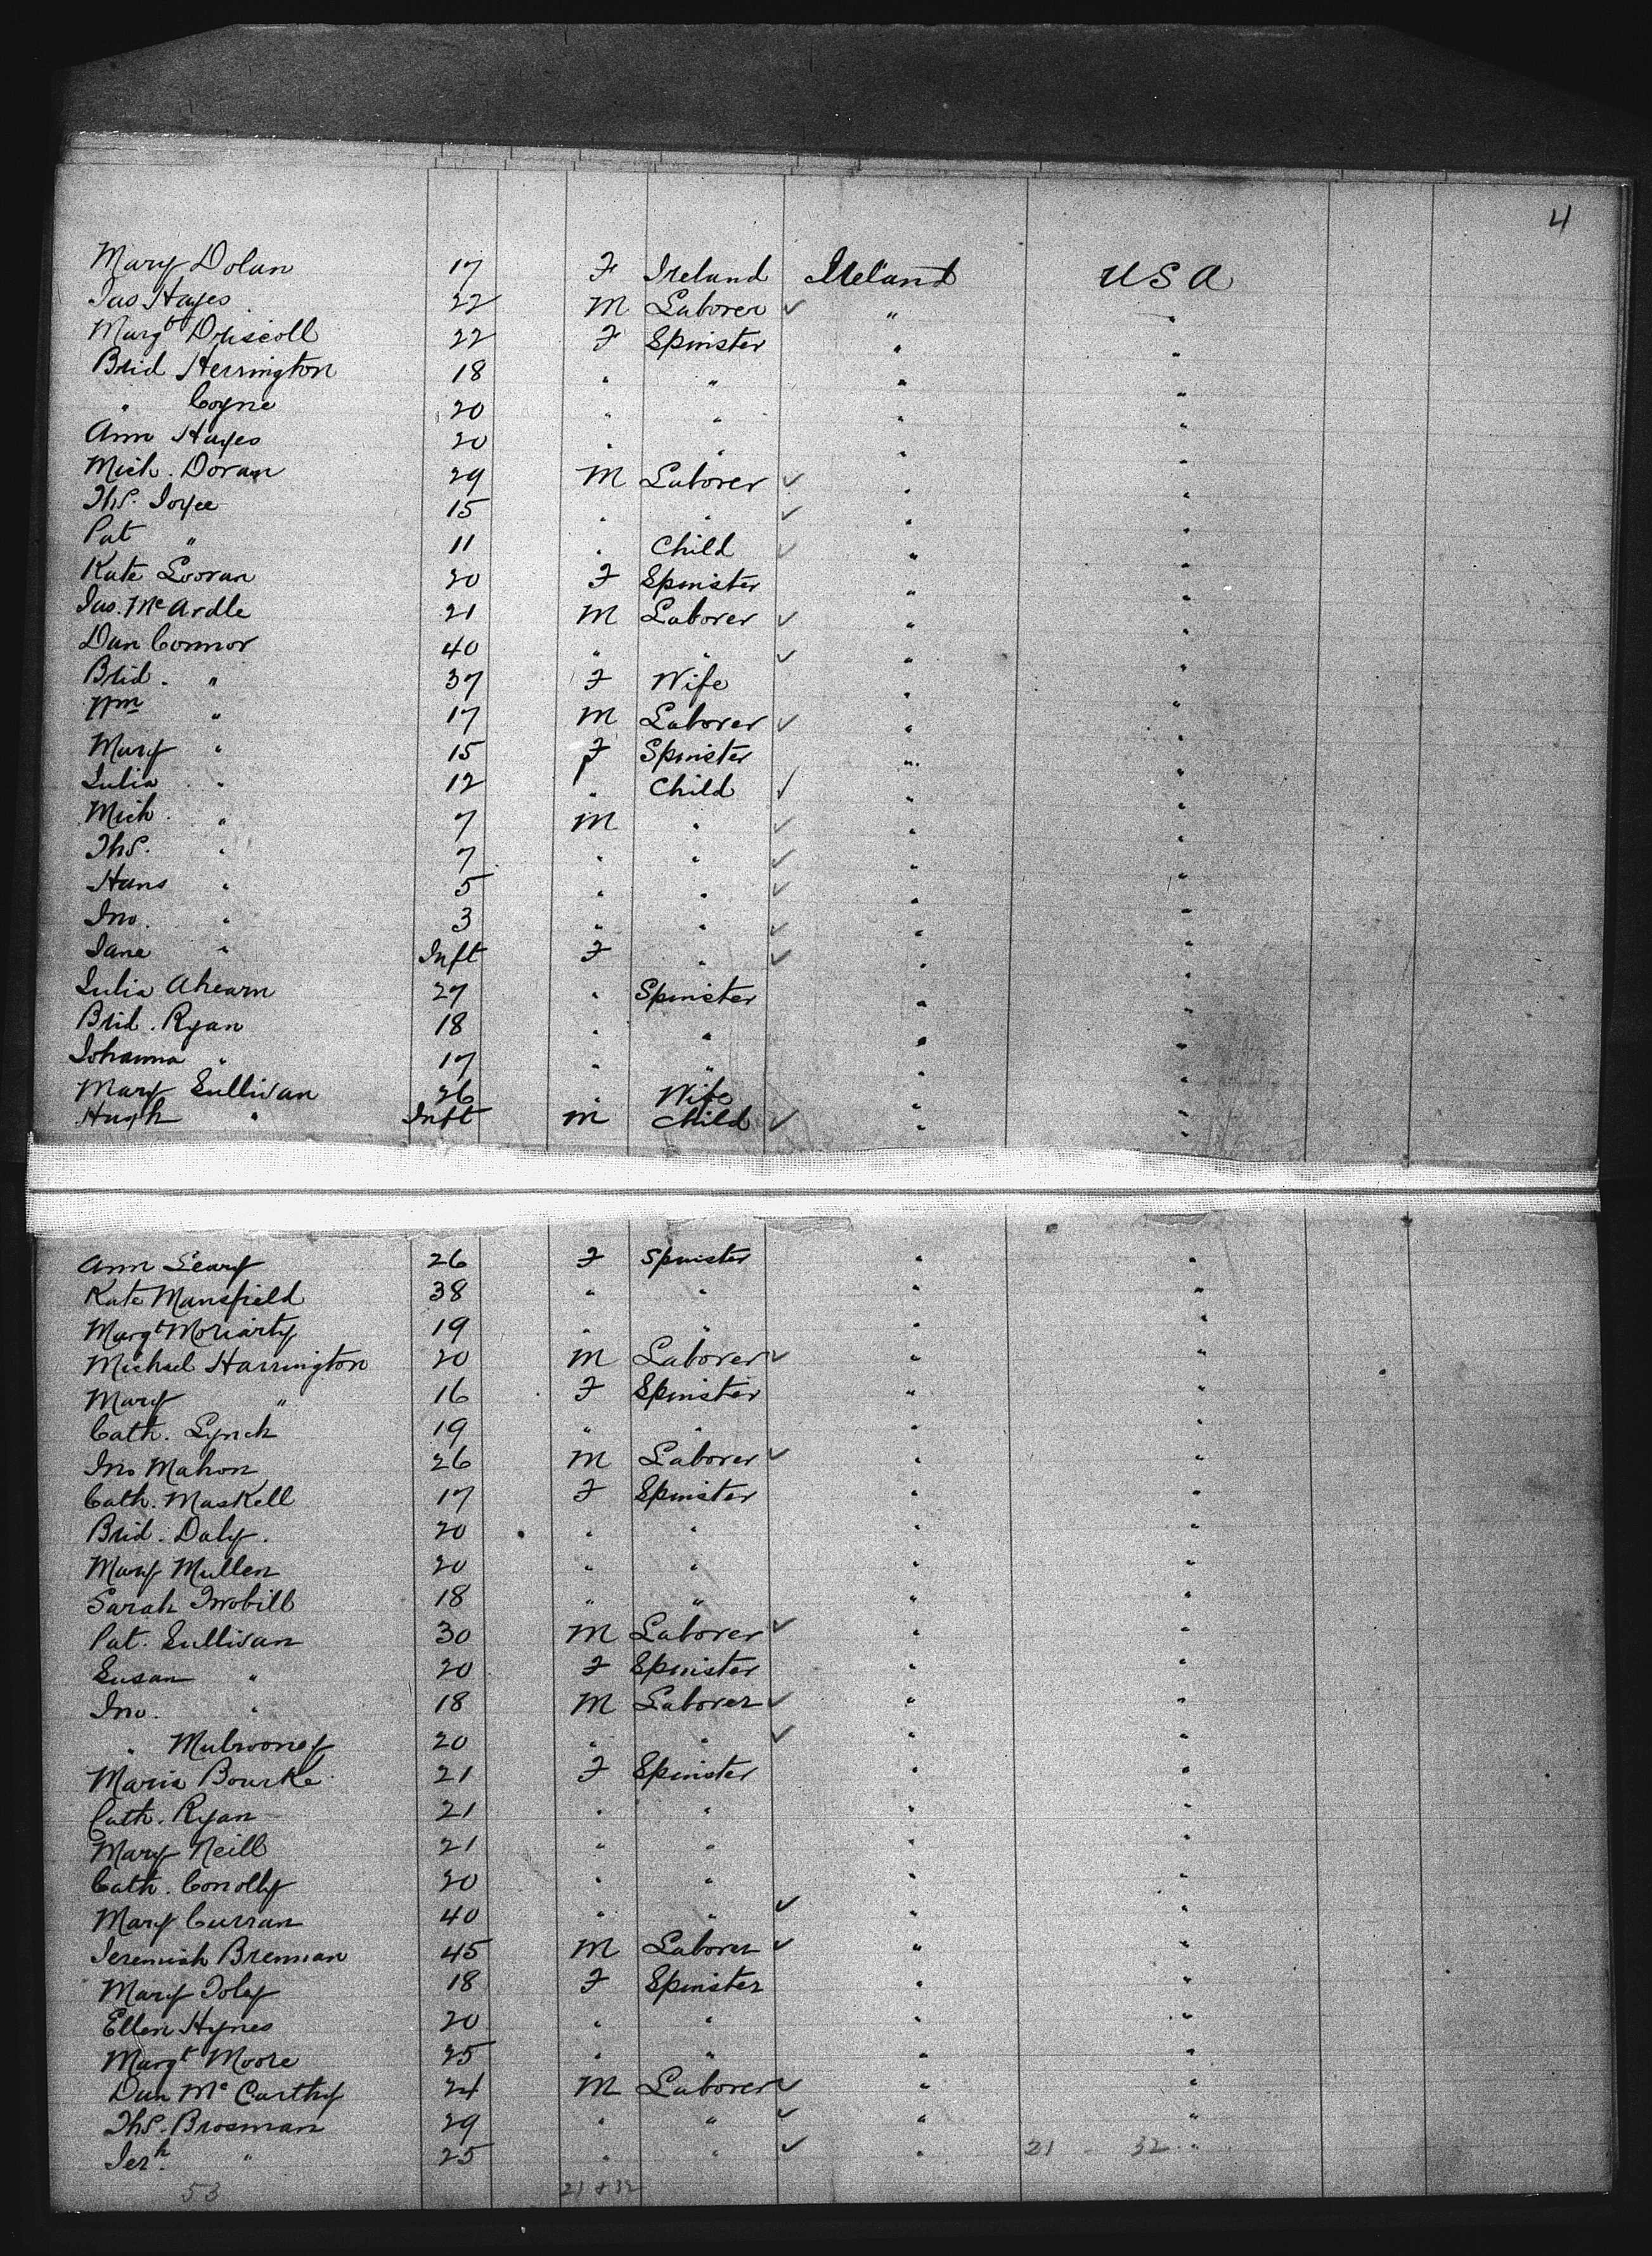 4
Mary Dolan 17 F Ireland Ireland USA
Jas Hayes 22 M Laborer ✓ " "
Margt Driscoll 22 F Spinster " "
Brid Herrington 18 " " " "
" Coyne 20 " " " "
Ann Hayes 20 " " " "
Mich. Doran 29 M Laborer ✓ " "
Ths. Joyce 15 " " ✓ " "
Pat " 11 " Child ✓ " "
Kate 20 F Spinster " "
Jas. McArdle 21 M Laborer ✓ " "
Dan Connor 40 " " ✓ " "
Brid. " 37 F Wife " "
Wm " 17 M Laborer ✓ " "
Mary " 15 F Spinster " "
Julia " 12 " Child ✓ " "
Mich. " 7 M " ✓ " "
Ths. " 7 " " ✓ " "
Hans " 5 " " ✓ " "
Jno. " 3 " " ✓ " "
Jane " Inft F " ✓ " "
Julia Ahearn 27 " Spinster " "
Brid. Ryan 18 " " " "
Johanna " 17 " " " "
Mary Sullivan 26 " Wife " "
Hugh " Inft M Child ✓ " "
Ann Leary 26 F Spinster " "
Kate Mansfield 38 " " " "
Margt Moriarty 19 " " " "
Michael Harrington 20 M Laborer ✓ " "
Mary " 16 F Spinster " "
Cath. Lynch 19 " " " "
Jno Mahon 26 M Laborer ✓ " "
Cath. Maskell 17 F Spinster " "
Brid. Daly. 20 " " " "
Mary Mullen 20 " " " "
Sarah 18 " " " "
Pat. Sullivan 30 M Laborer ✓ " "
Susan " 20 F Spinster " "
Jno. " 18 M Laborer ✓ " "
" Mulrooney 20 " " ✓ " "
Maria Bourke 21 F Spinster " "
Cath. Ryan 21 " " " "
Mary Neill 21 " " " "
Cath. Conolly 20 " " " "
Mary Curran 40 " " ✓ " "
Jeremiah Brennan 45 M Laborer ✓ " "
Mary Foley 18 F Spinster " "
Ellen Hynes 20 " " " "
Margt Moore 25 " " " "
Dan McCarthy 24 M Laborer ✓ " "
Ths. Brosman 29 " " ✓ " "
Jerh. " 25 " " ✓ " 21 32 "
53 21 + 32